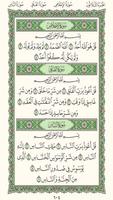 سُورَةُ الإِخْلَاصِ
بِسْمِ اللَّهِ الرَّحْمَٰنِ الرَّحِيمِ
قُلْ هُوَ اللَّهُ أَحَدٌ ۝١ اللَّهُ الصَّمَدُ ۝٢ لَمْ يَلِدْ
وَلَمْ يُولَدْ ۝٣ وَلَمْ يَكُن لَّهُ كُفُوًا أَحَدٌ ۝٤
سُورَةُ الفَلَقِ
بِسْمِ اللَّهِ الرَّحْمَٰنِ الرَّحِيمِ
قُلْ أَعُوذُ بِرَبِّ الْفَلَقِ ۝١ مِن شَرِّ مَا خَلَقَ ۝٢ وَمِن شَرِّ
غَاسِقٍ إِذَا وَقَبَ ۝٣ وَمِن شَرِّ النَّفَّاثَاتِ فِي
الْعُقَدِ ۝٤ وَمِن شَرِّ حَاسِدٍ إِذَا حَسَدَ ۝٥
سُورَةُ النَّاسِ
بِسْمِ اللَّهِ الرَّحْمَٰنِ الرَّحِيمِ
قُلْ أَعُوذُ بِرَبِّ النَّاسِ ۝١ مَلِكِ النَّاسِ ۝٢
إِلَٰهِ النَّاسِ ۝٣ مِن شَرِّ الْوَسْوَاسِ
الْخَنَّاسِ ۝٤ الَّذِي يُوَسْوِسُ فِي صُدُورِ
النَّاسِ ۝٥ مِنَ الْجِنَّةِ وَالنَّاسِ ۝٦
٦٠٤